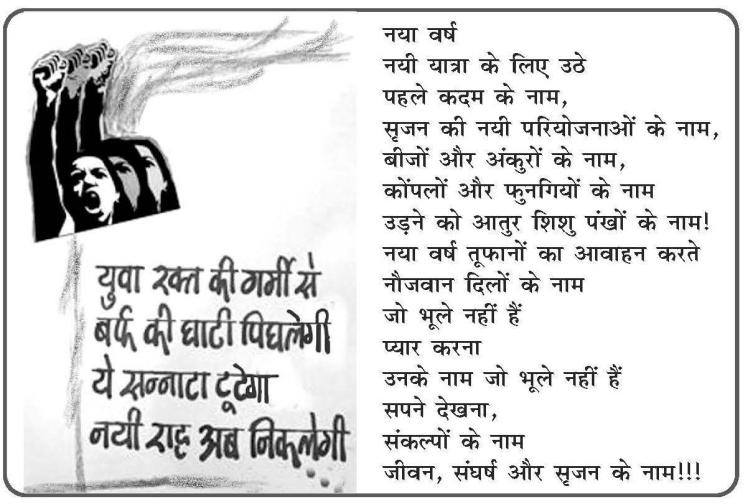 युवा रक्त की गर्मी से
बर्फ की घाटी पिघलेगी
ये सन्नाटा टूटेगा
नयी राह अब निकलेगी...
नया वर्ष
नयी यात्रा के लिए उठे
पहले कदम के नाम,
सृजन की नयी परियोजनाओं के नाम,
बीजों और अंकुरों के नाम,
कोंपलों और फुनगियों के नाम
उड़ने को आतुर शिशु पंखों के नाम!
नया वर्ष तूफानों का आवाहन करते
नौजवान दिलों के नाम
जो भूले नहीं हैं
प्यार करना
उनके नाम जो भूले नहीं हैं
सपने देखना,
संकल्पों के नाम
जीवन, संघर्ष और सृजन के नाम!!!